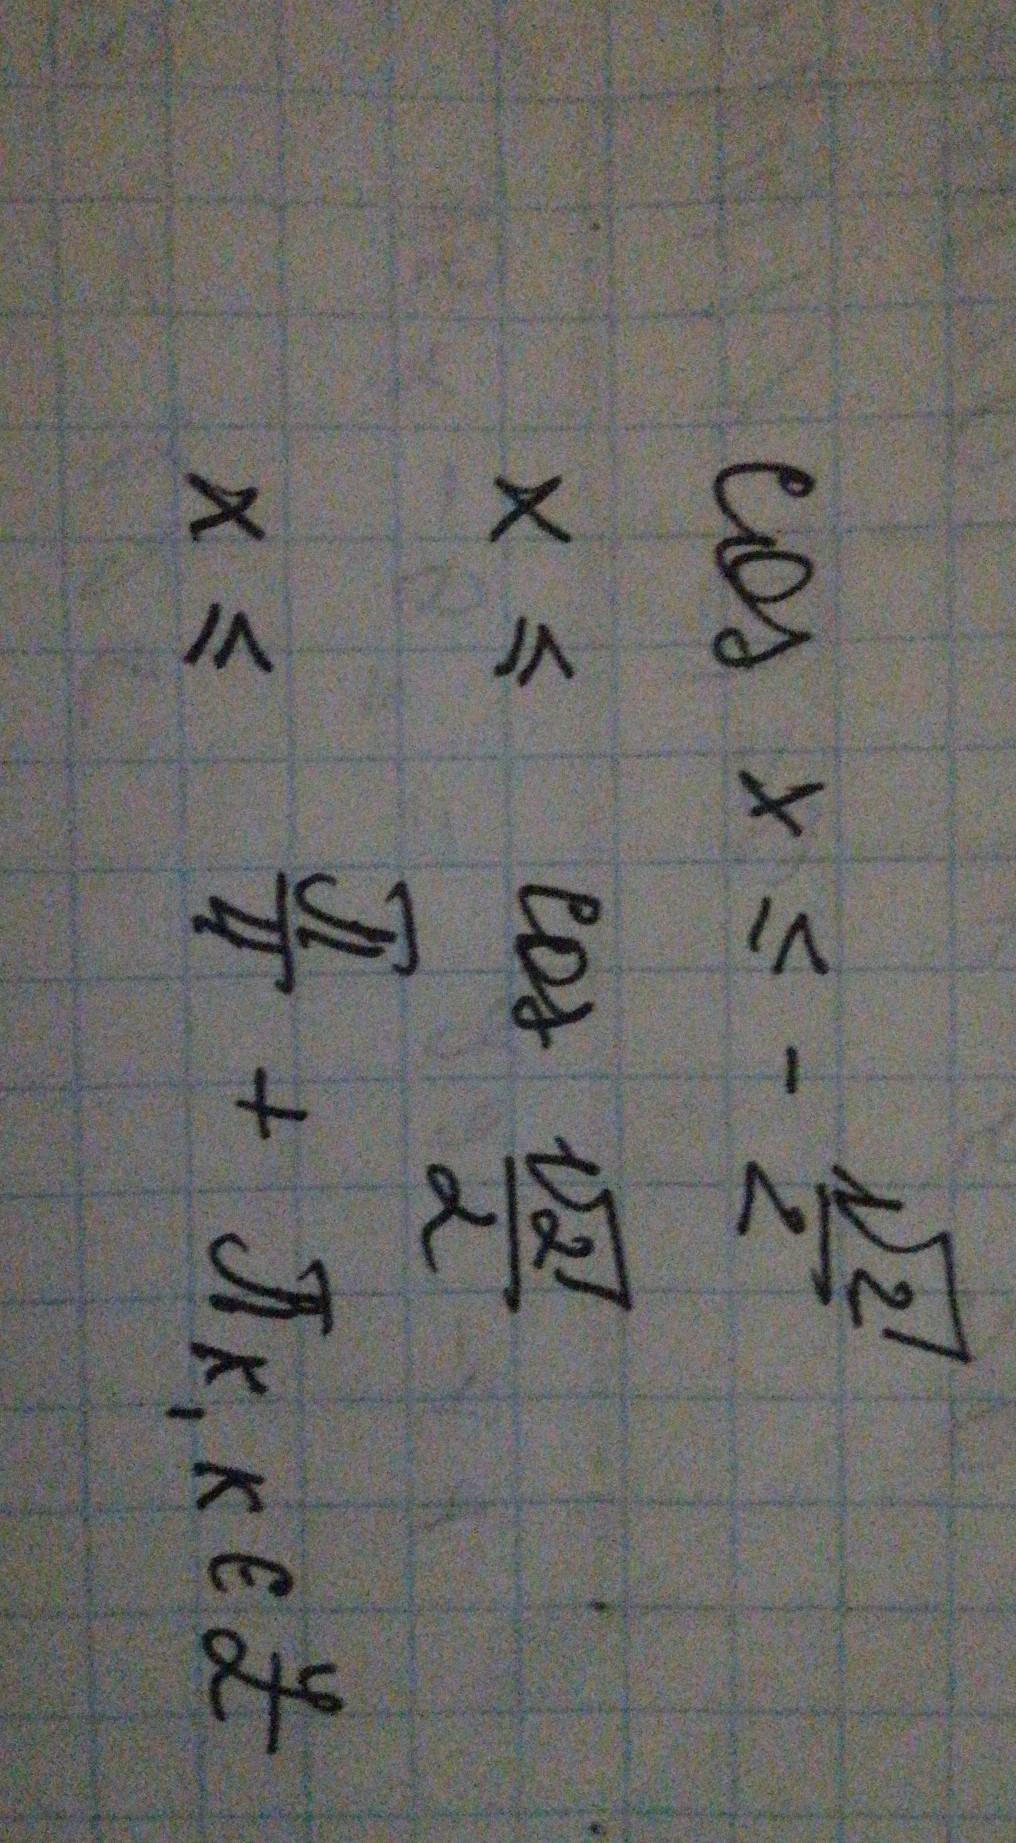 cos x ≤ - √2/2
x ≤ cos √2/2
x ≤ π/4 + πк, к ∈ Z